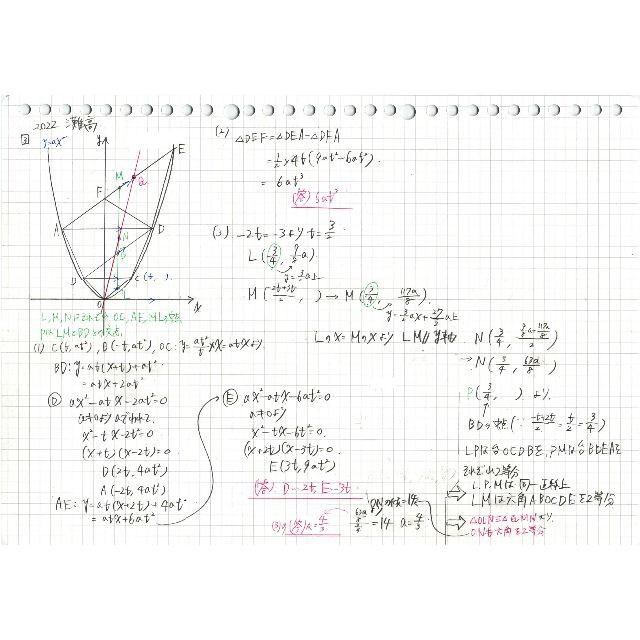 2022 灘高
3
y=ax²
y
E
M
Q
F
A
D
N
P
B
C(t, ).
L
O
x
L, M, NはそれぞれOC, AE, MLの中点
PはLMとBDとの交点.
(1) C(t, at²), B(-t, at²), OC: y=at²/t×x=atxより
BD: y=at(x+t)+at²
=atx+2at²
D ax²-atx-2at²=0
a≠0よりaでわれて.
x²-tx-2t²=0
(x+t)(x-2t)=0
D(2t, 4at²)
A(-2t, 4at²)
AE: y=at(x+2t)+4at²
=atx+6at²
E ax²-atx-6at²=0
a≠0より
x²-tx-6t²=0.
(x+2t)(x-3t)=0
E(3t, 9at²)
(答) D…2t, E…3t.
(2) △DEF=△DEA-△DFA
=1/2×4t(9at²-6at²).
=6at³
(答) 6at³
(3) -2t=-3より t=3/2
L(3/4, 9/8a)
y=3/2a上
M(-2t+3t/2, ) → M(3/4, 117a/8)
y=3/2ax+27/2a上
Lのx=Mのxより LM//y軸
N(3/4, 9/8a+117a/8 / 2)
→N(3/4, 63a/8)
P(3/4, ) より
BDの中点(∵ -t+2t/2=t/2=3/4)
LPは台OCDBを, PMは台BDEAを
それぞれ2等分
L.P.Mは同一直線上
LMは六角ABOCDEを2等分
△OLN≡△QMNより.
ONも六角を2等分
ONの傾き=14
63a/8 / 3/4 =14 a=4/3
(3)の(答) a=4/3